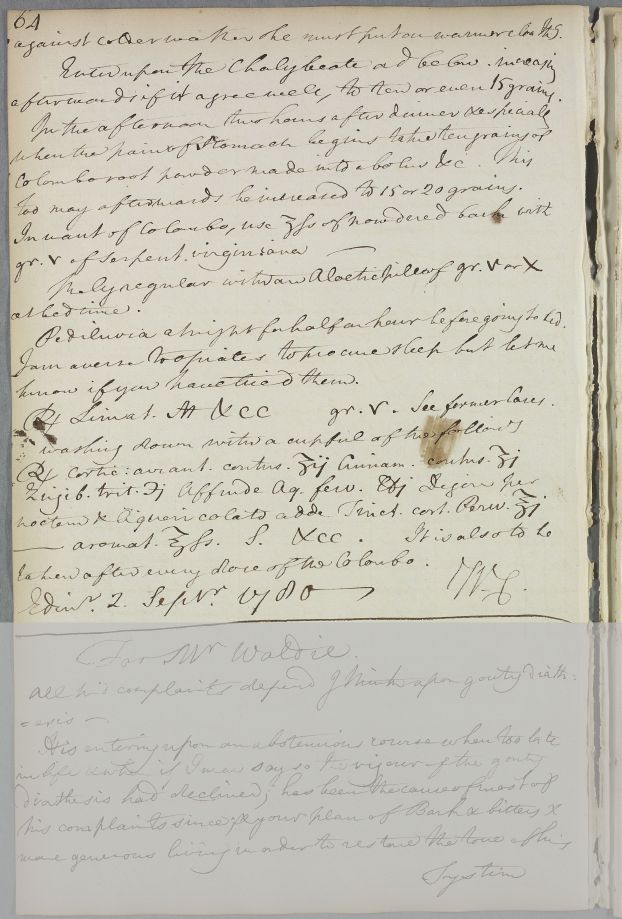 64
against colder weather she must put on warmer cloaths.
Enter upon the Chalybeate as below increasing
afterwards if it agree well, to ten or even 15 grains.
In the afternoon two hours after dinner & especially
when the pain of Stomach begins take ten grains of
Colombo root powder made into a bolus &c. This
too may afterwards be increased to 15 or 20 grains.
In want of Colombo, use ʒſs of powdered bark with
gr. V of Serpent. virginiana
regular with an Aloetic pill of gr. V or X
at bed time.
Pediluvia at night for half an hour before going to bed.
I am averse to opiates to procure sleep but let me
know if you have tried them.
℞ Limat. &cc gr. V. See former Cases.
washing down with a cupful of the follow.g
℞ cortic: aurant. contus. ʒij Cinnam. contus. ʒj
Zingib. trit. ℈j Affunde Aq. ferv. ℔j Digere per
noctem & liquori colato adde Tinct. cort. Peruv. ʒj
— aromat. ʒſs. S. &cc. It is also to be
taken after every dose of the Colombo.
Edinr. 2. Septr. 1780 W.C.
For Mr Waldie.
All his complaints depend I think upon gouty diath=
=esis —
His entering upon an abstemious course when too late
in life & when if I may say so the vigour of the gouty
diathesis had declined, has been the cause of most of
his complaints since; & your plan of Bark & bitters &
more generous living in order to restore the tone of his
System